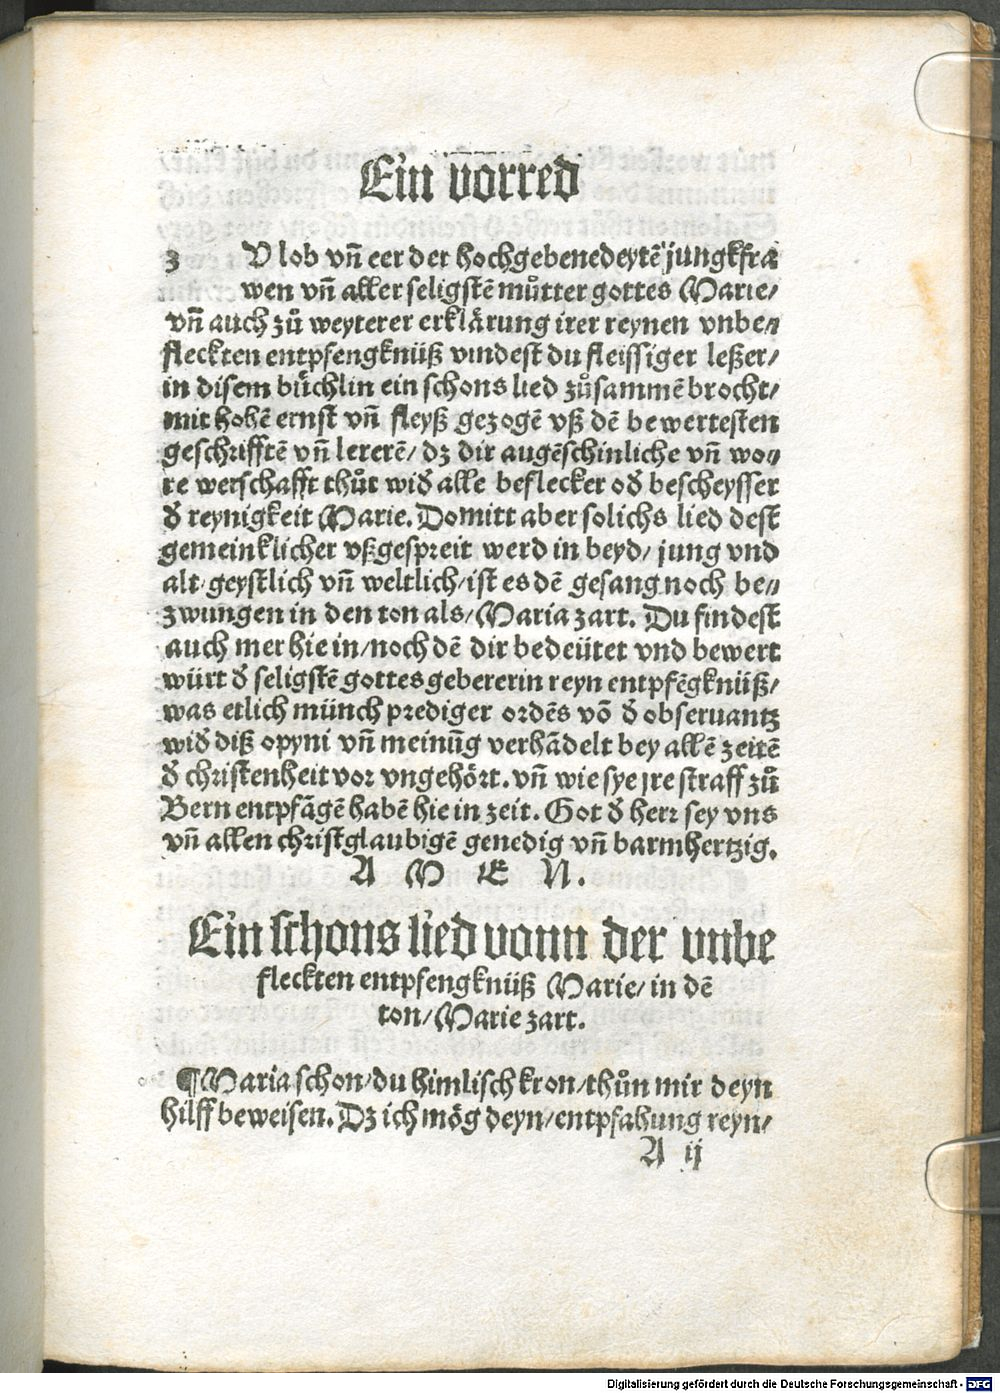 Ein vorred
z U lob vn̄ eer der hochgebenedeytē jungkfra
wen vn̄ aller seligstē můtter gottes Marie/
vn̄ auch zů weyterer erklärung irer reynen vnbe⸗
fleckten entpfengknüß vindest du fleissiger leßer/
in disem büchlin ein schons lied zůsammē brocht/
mit hohē ernst vn̄ fleyß gezogē vß dē bewertesten
geschrifftē vn̄ lererē/ dz dir augēschinliche vn̄ wo⸗
re werschafft thůt wid̕ alle beflecker od̕ bescheysser
d̕ reynigkeit Marie. Domitt aber solichs lied dest
gemeinklicher vßgespreit werd in beyd/ jung vnd
alt/ geystlich vn̄ weltlich/ ist es dē gesang noch be⸗
zwungen in den ton als/ Maria zart. Du findest
auch mer hie in/ noch dē dir bedeütet vnd bewert
würt d̕ seligstē gottes gebererin reyn entpfēgknüß/
was etlich münch prediger ordēs vō d̕ obseruantz
wid̕ diß opyni vn̄ meinūg verhādelt bey allē zeitē
d̕ christenheit vor vngehört. vn̄ wie sye jre straff zů
Bern entpfāgē habē hie in zeit. Got d̕ herr sey vns
vn̄ allen christglaubigē genedig vn̄ barmhertzig.
A M E N.
Ein schons lied vonn der vnbe
fleckten entpfengknüß Marie/ in dē
ton/ Marie zart.
¶Maria schon/ du himlisch kron/ thůn mir deyn
hilff beweisen. Dz ich mög deyn/ entpfahung reyn/
A ij
Digitalisierung gefördert durch die Deutsche Forschungsgemeinschaft - DFG